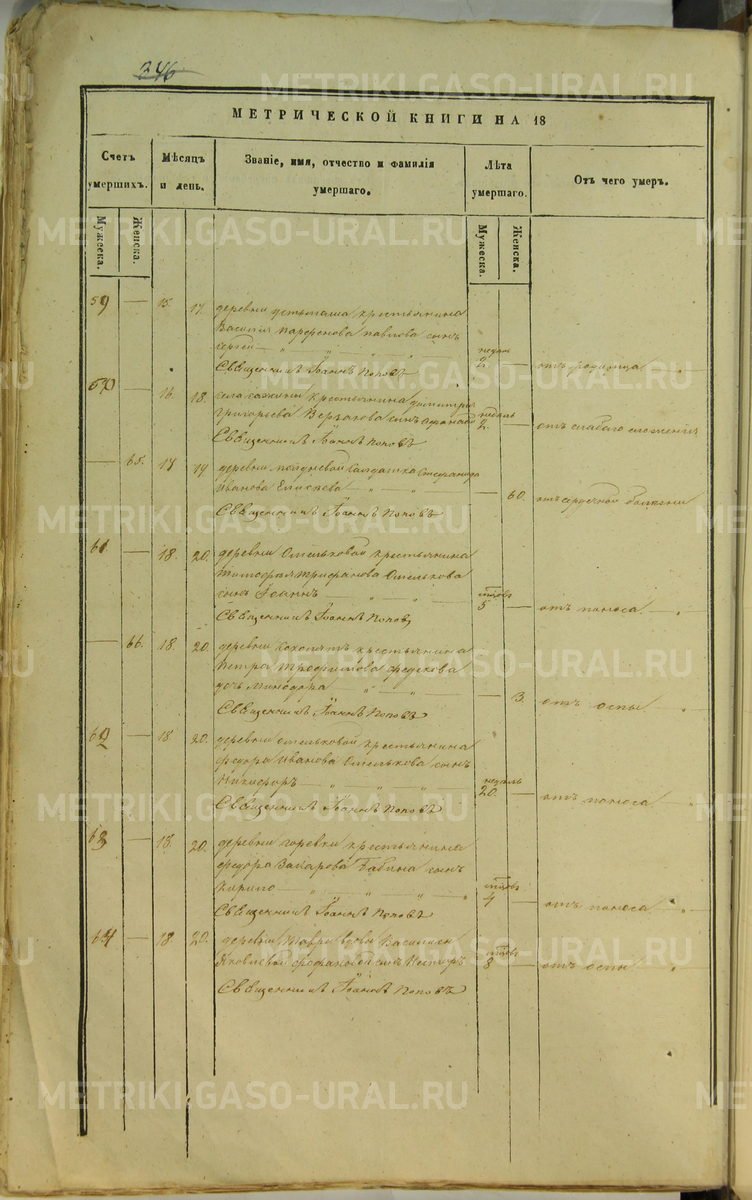 346
МЕТРИЧЕСКОЙ КНИГИ НА 18
Счетъ умершихъ.
Мѣсяцъ и день.
Званіе, имя, отчество и фамилія умершаго.
Лѣта умершаго.
Отъ чего умеръ.
Мужеска.
Женска.
Мужеска.
Женска.
59 — 15. 17. деревни устьмаша крестьянина
Василія Парфенова Павлова сынъ
Сергей — недѣл 2 — отъ родимца
Священникъ Іоаннъ Поповъ
60 — 16. 18. села крестьянина Димитрія
Григорьева сынъ недѣль 2. — отъ слабаго сложенія
Священникъ Іоаннъ Поповъ
— 65. 17 19 деревни солдатка
Иванова Елисѣева — 60. отъ болѣзни
Священникъ Іоаннъ Поповъ
61 — 18. 20. деревни Омельковой крестьянина
Тимофея Трифанова Омелькова
сынъ Іоаннъ 5 — отъ поноса
Священникъ Іоаннъ Поповъ
— 66. 18. 20. деревни крестьянина
Петра Трофимова Федекова
дочь Минодора — 3. отъ оспы
Священникъ Іоаннъ Поповъ
62 — 18. 20. деревни Омельковой крестьянина
Федора Иванова Омелькова сынъ
Никифоръ недѣль 20. — отъ поноса
Священникъ Іоаннъ Поповъ
63 — 18. 20. деревни Горевки крестьянина
Федора Захарова Бабина сынъ
Кирило 4 — отъ поноса
Священникъ Іоаннъ Поповъ
64 — 18 20. деревни Тавры вдовы
Яковлевой сынъ Несторъ 8 — отъ оспы
Священникъ Іоаннъ Поповъ
METRIKI.GASO-URAL.RU